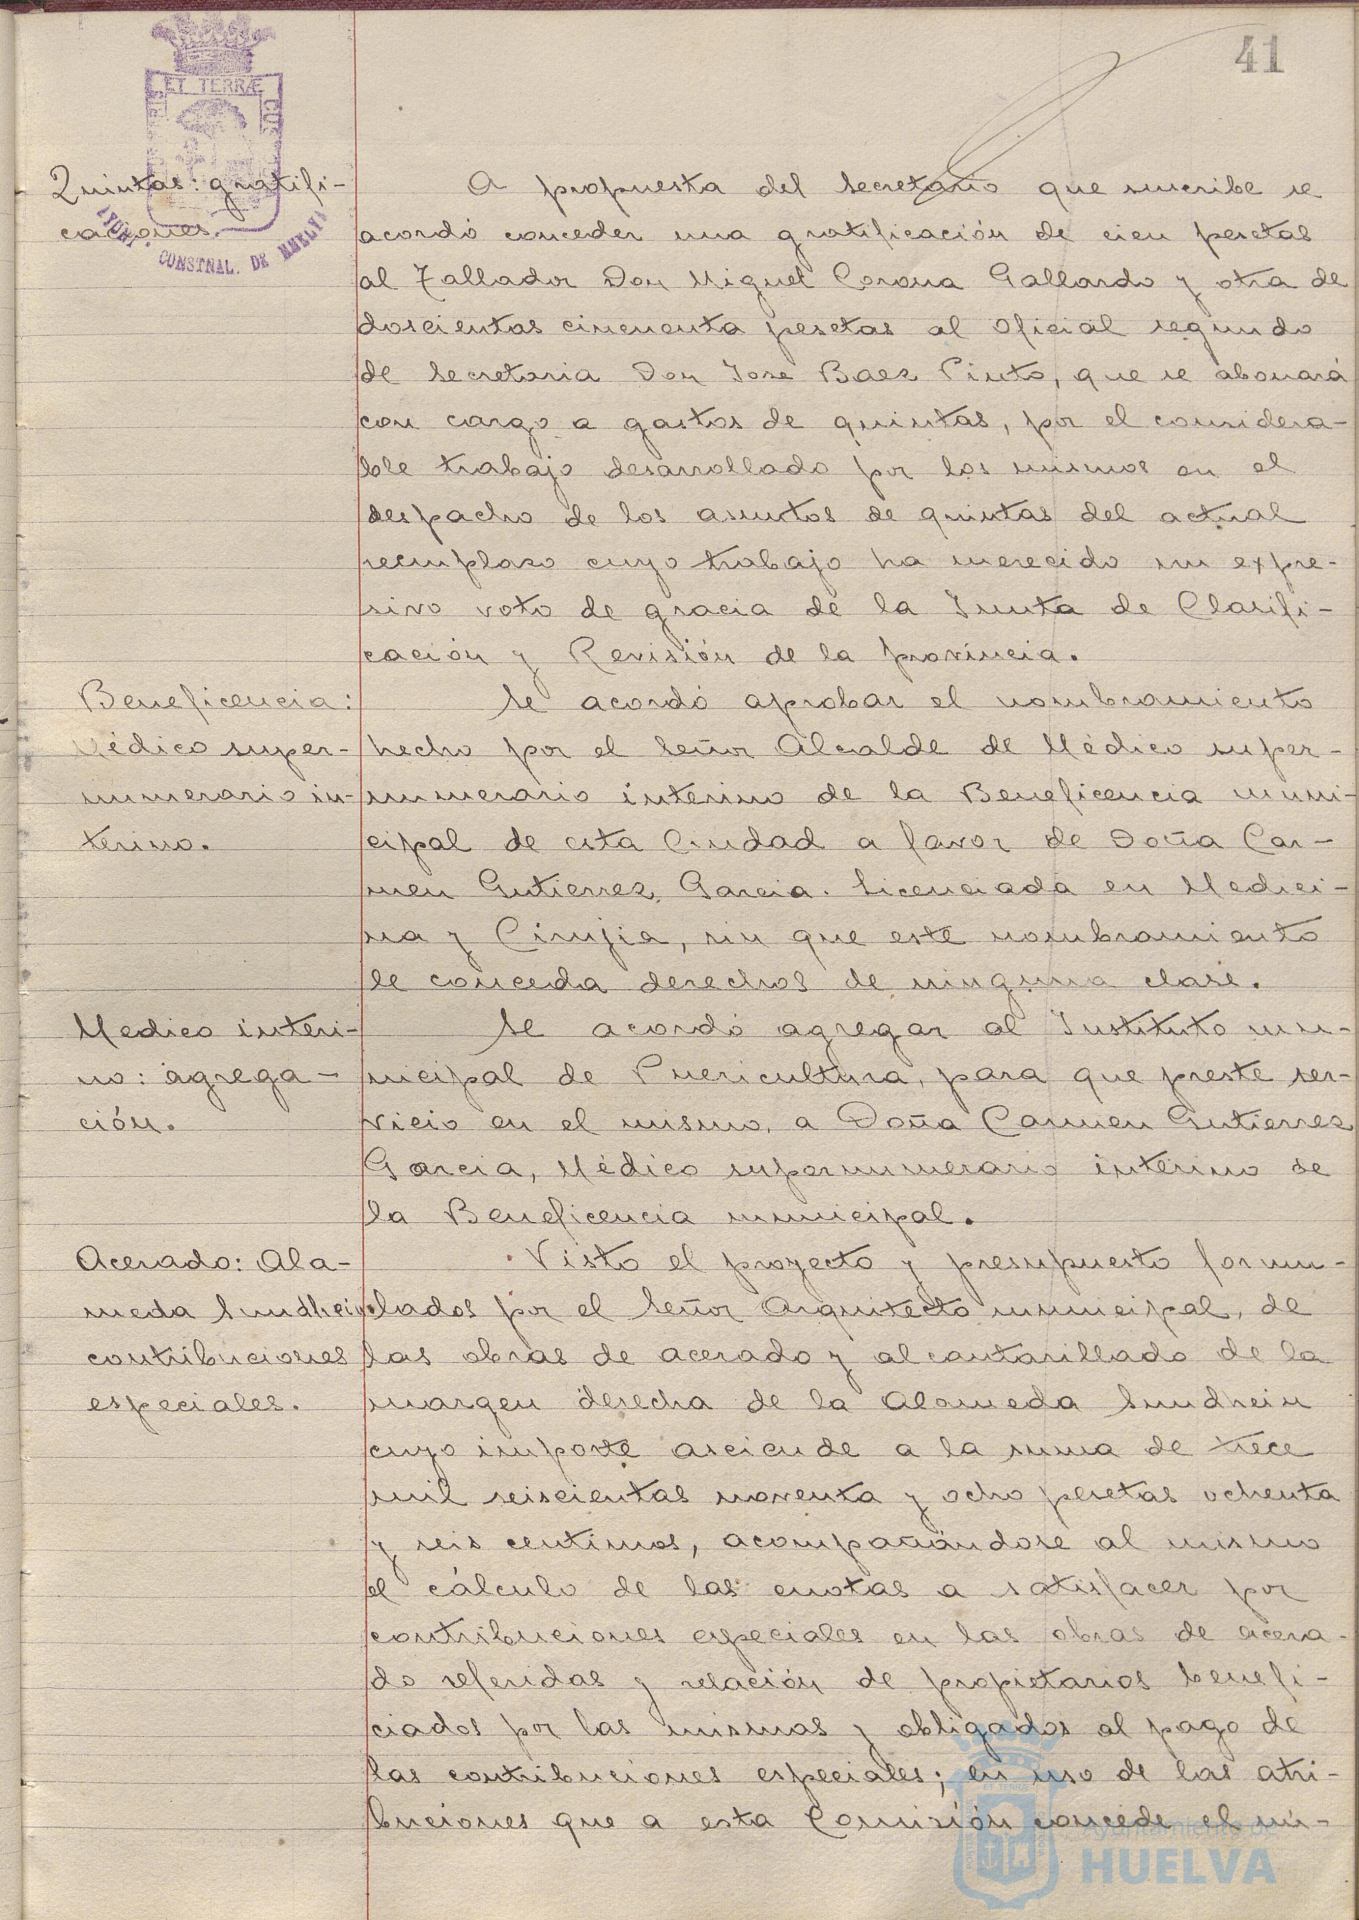 41
ET TERRÆ
AYUNT. CONSTNAL. DE HUELVA
Quintas: gratifi-
caciones.
A propuesta del Secretario que suscribe se
acordó conceder una gratificación de cien pesetas
al Tallador Don Miguel Corona Gallardo y otra de
doscientas cincuenta pesetas al oficial segundo
de Secretaria Don Jose Baez Pinto, que se abonará
con cargo a gastos de quintas, por el considera-
ble trabajo desarrollado por los mismos en el
despacho de los asuntos de quintas del actual
reemplazo cuyo trabajo ha merecido un expre-
sivo voto de gracia de la Junta de Clasifi-
cación y Revisión de la provincia.
Beneficencia:
Médico super-
numerario in-
terino.
Se acordó aprobar el nombramiento
hecho por el Señor Alcalde de Médico super-
numerario interino de la Beneficencia muni-
cipal de esta Ciudad a favor de Doña Car-
men Gutierrez Garcia. Licenciada en Medici-
na y Cirujia, sin que este nombramiento
le conceda derechos de ninguna clase.
Medico interi-
no: agrega-
ción.
Se acordó agregar al Instituto mu-
nicipal de Puericultura, para que preste ser-
vicio en el mismo, a Doña Carmen Gutierrez
Garcia, Médico supernumerario interino de
la Beneficencia municipal.
Acerado: Ala-
meda Sundheim
contribuciones
especiales.
Visto el proyecto y presupuesto formu-
lados por el Señor Arquitecto municipal, de
las obras de acerado y alcantarillado de la
margen derecha de la Alameda Sundheim
cuyo importe asciende a la suma de trece
mil seiscientas noventa y ocho pesetas ochenta
y seis centimos, acompañándose al mismo
el cálculo de las cuotas a satisfacer por
contribuciones especiales en las obras de acera-
do referidas y relación de propietarios benefi-
ciados por las mismas y obligados al pago de
las contribuciones especiales; en uso de las atri-
buciones que a esta Comisión concede el nú-
Ayuntamiento de
HUELVA